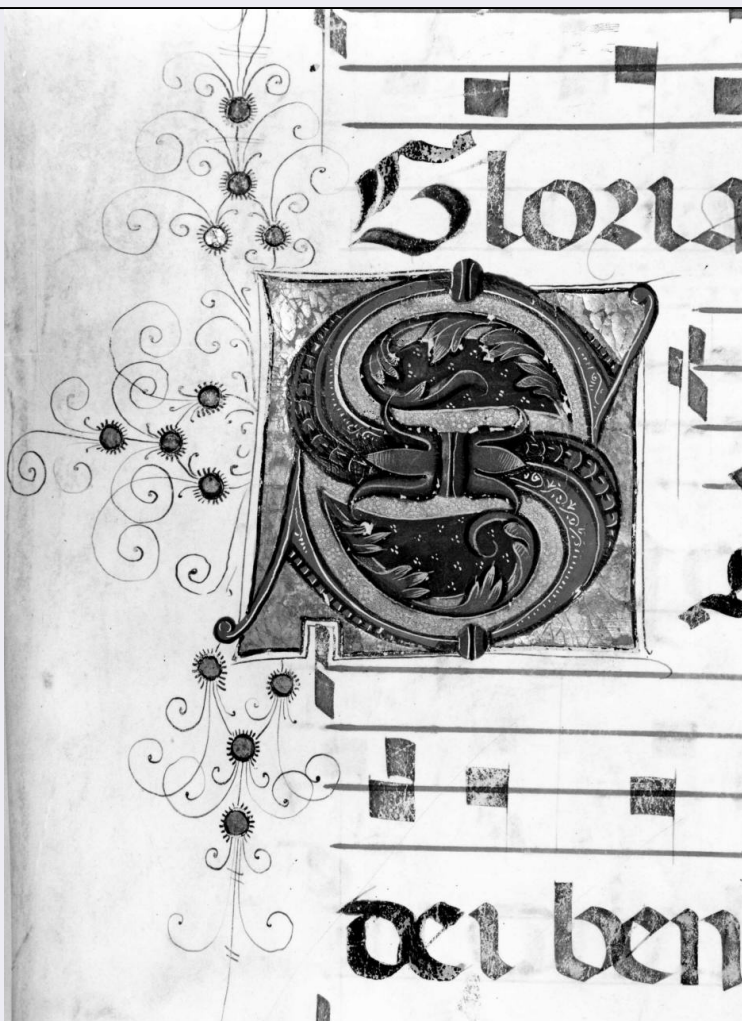 Gloria
S
dei ben